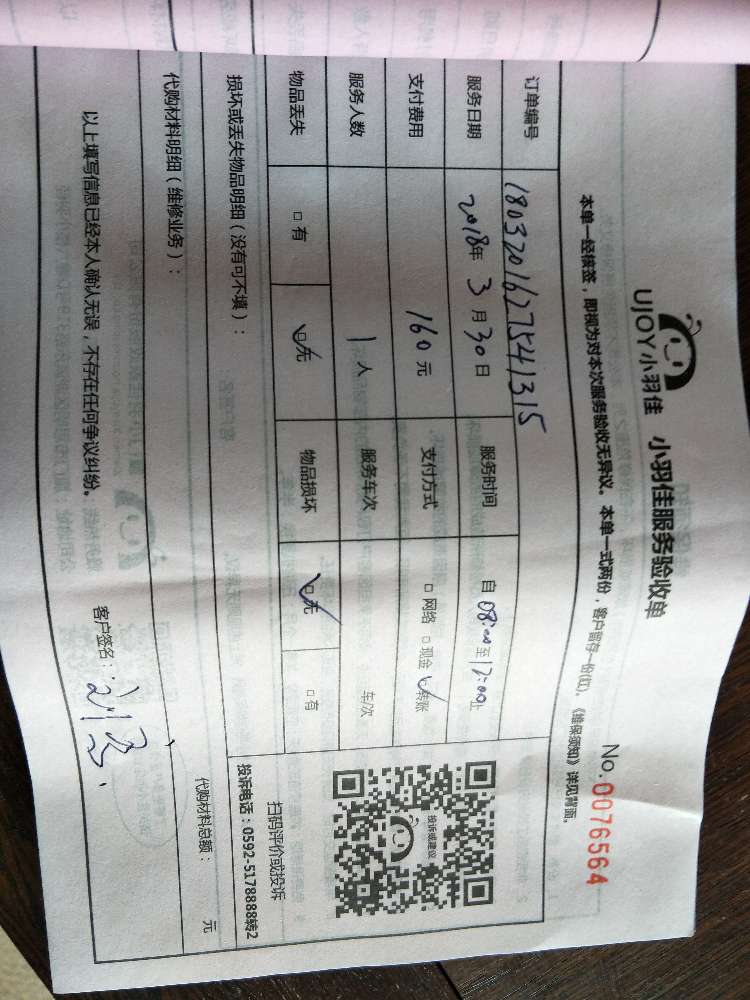 UJOY小羽佳 小羽佳服务验收单
No.0076564
本单一经核签，即视为对本次服务验收无异议。本单一式两份，客户留存一份(红)，《维保须知》详见背面。
订单编号 180320162754131 5
服务日期 2018年3月30日 服务时间 自08:00至12:00止
支付费用 160元 支付方式 □网络 □现金 ☑转账
服务人数 1人 服务车次 车/次
物品丢失 □有 ☑无 物品损坏 ☑无 □有
投诉或建议
扫码评价或投诉
投诉电话：0592-5178888转2
损坏或丢失物品明细（没有可不填）：
代购材料明细（维修业务）： 代购材料总额： 元
以上填写信息已经本人确认无误，不存在任何争议纠纷。 客户签名：